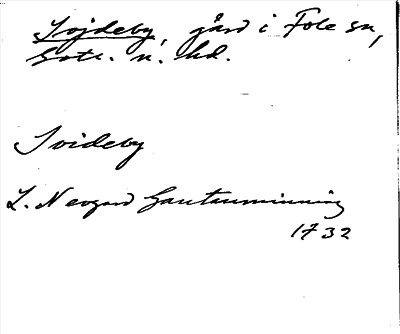 Sojdeby, gård i Fole sn,
Gotl. n. hd.
Soideby
L. Neogard Gautauminning
1732